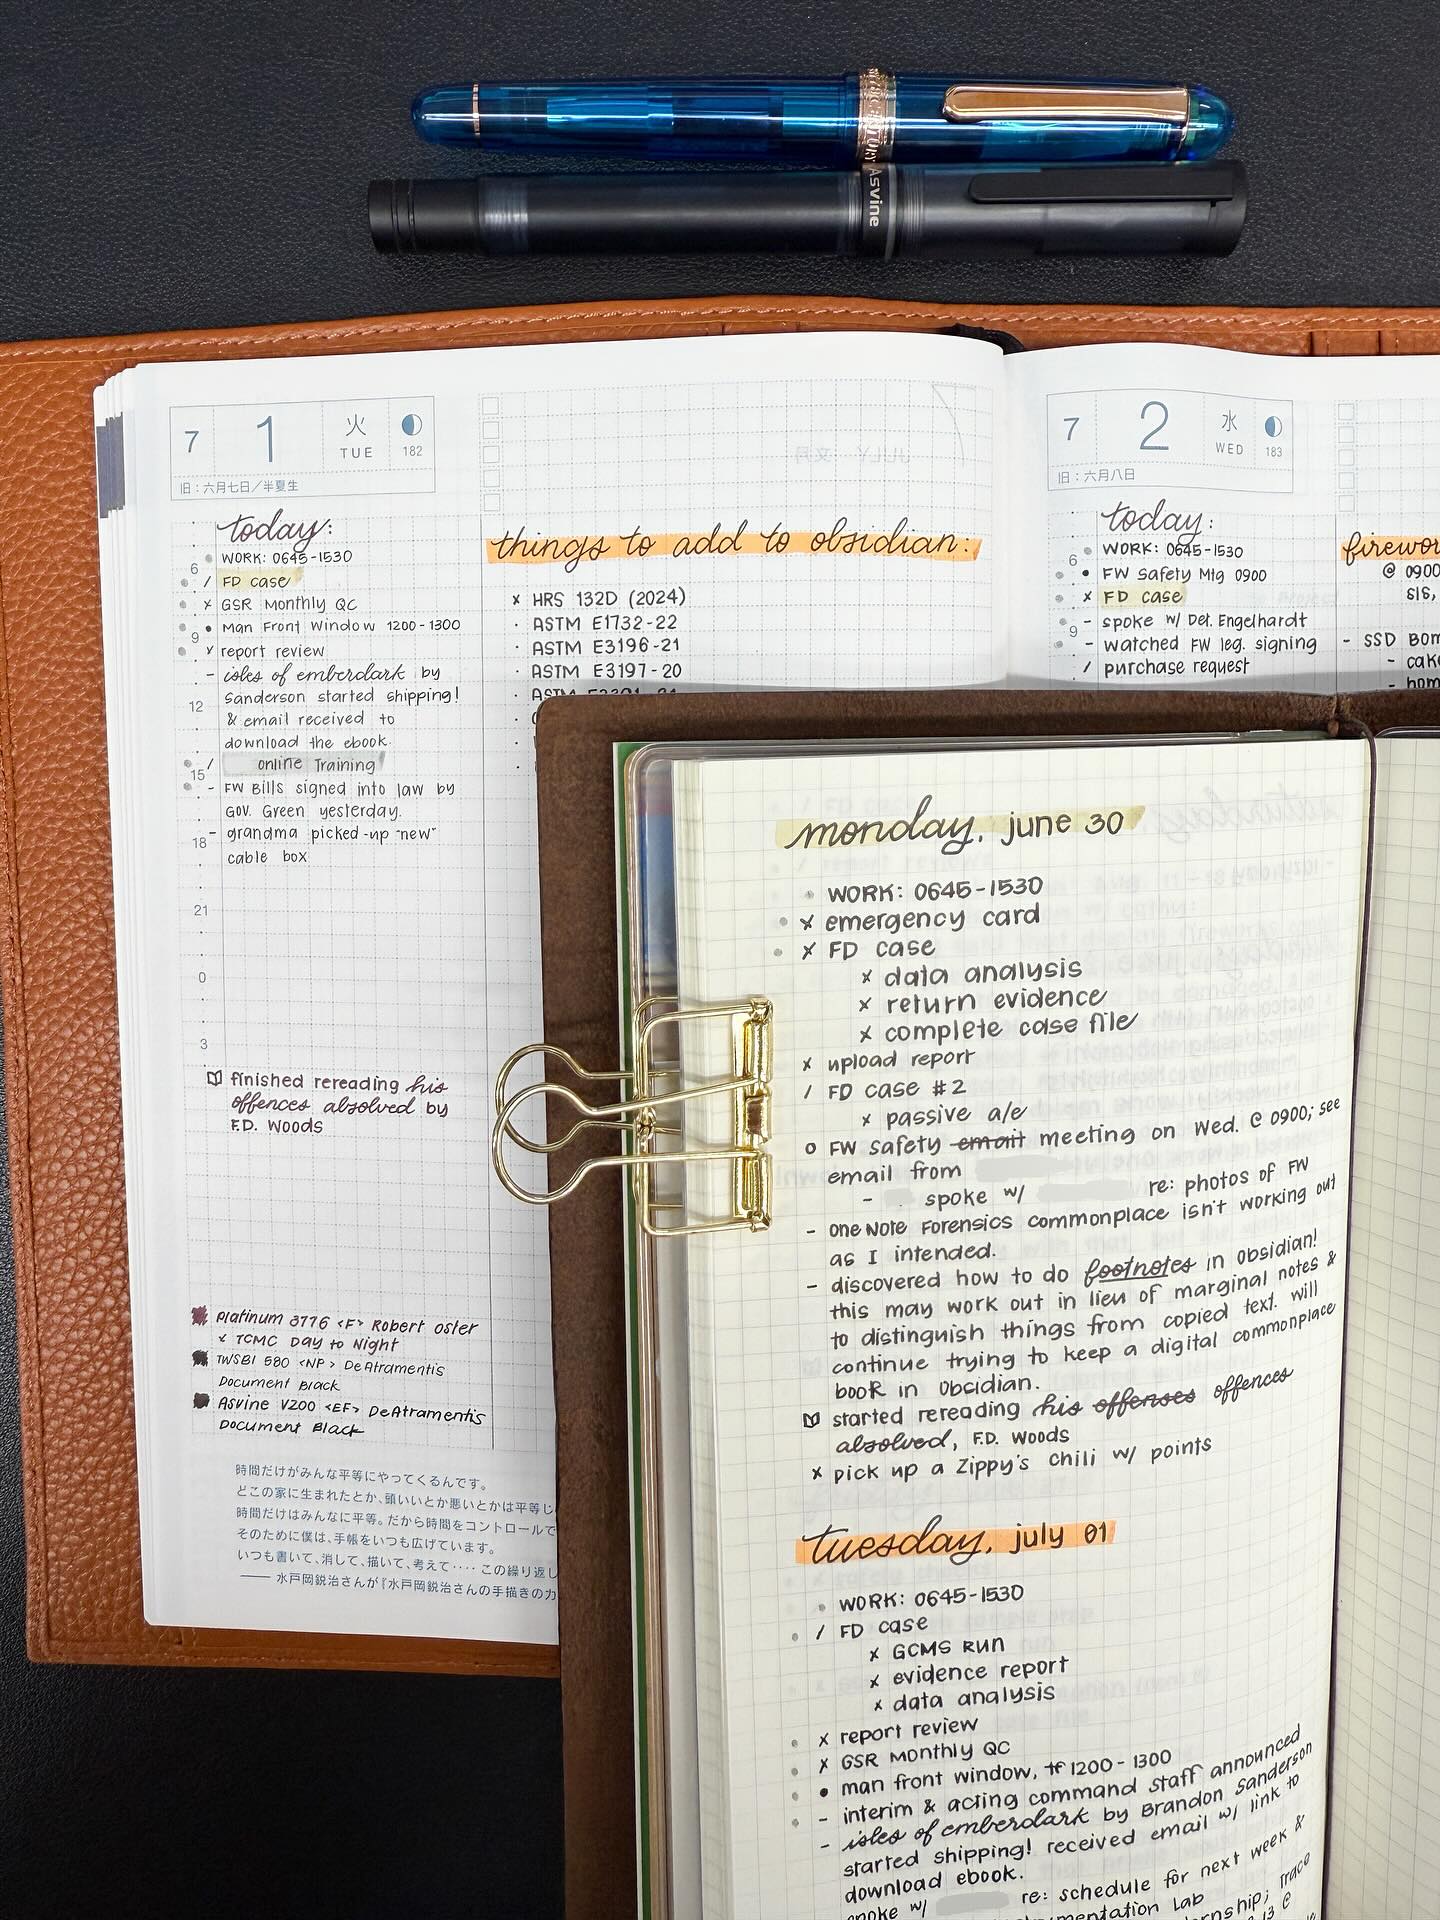 Asvine
7
1
火
TUE
182
旧：六月七日／半夏生
today:
WORK: 0645-1530
6
/ FD case
x GSR Monthly QC
9
• Man Front Window 1200-1300
x report review
- isles of emberdark by
Sanderson started shipping!
12
& email received to
download the ebook.
/ online Training
15
- FW Bills signed into law by
Gov. Green yesterday.
18
- grandma picked-up "new"
cable box
21
0
3
finished rereading his
offences absolved by
F.D. Woods
Platinum 3776 <F> Robert Oster
x TCMC Day to Night
TWSBI 580 <NP> DeAtramentis
Document Black
Asvine V200 <EF> DeAtramentis
Document Black
時間だけがみんな平等にやってくるんです。
どこの家に生まれたとか、頭いいとか悪いとかは平等じ
時間だけはみんなに平等。だから時間をコントロールで
そのために僕は、手帳をいつも広げています。
いつも書いて、消して、描いて、考えて‥‥ この繰り返し
── 水戸岡鋭治さんが『水戸岡鋭治さんの手描きの力
things to add to obsidian:
x HRS 132D (2024)
· ASTM E1732-22
· ASTM E3196-21
· ASTM E3197-20
· ASTM
7
2
水
WED
183
旧：六月八日
today:
WORK: 0645-1530
6
• FW Safety Mtg 0900
x FD case
9
- spoke w/ Det. Engelhardt
- watched FW leg. signing
/ purchase request
firewor
@ 0900
SIS,
- SSD Bom
- cak
- hom
monday, june 30
WORK: 0645-1530
x emergency card
x FD case
x data analysis
x return evidence
x complete case file
x upload report
/ FD case #2
x passive a/e
o FW safety email meeting on Wed. @ 0900; see
email from
- spoke w/ re: photos of FW
- OneNote Forensics commonplace isn't working out
as I intended.
- discovered how to do footnotes in obsidian!
this may work out in lieu of marginal notes &
to distinguish things from copied text. will
continue trying to keep a digital commonplace
book in Obsidian.
started rereading his offenses offences
absolved, F.D. Woods
x pick up a Zippy's chili w/ points
tuesday, july 01
WORK: 0645-1530
/ FD case
x GCMS Run
x evidence report
x data analysis
x report review
x GSR Monthly QC
• man front window, 1200-1300
- interim & acting command staff announced
- isles of emberdark by Brandon Sanderson
started shipping! received email w/ link to
download ebook.
spoke w/ re: schedule for next week &
Lab
Trace
13 @